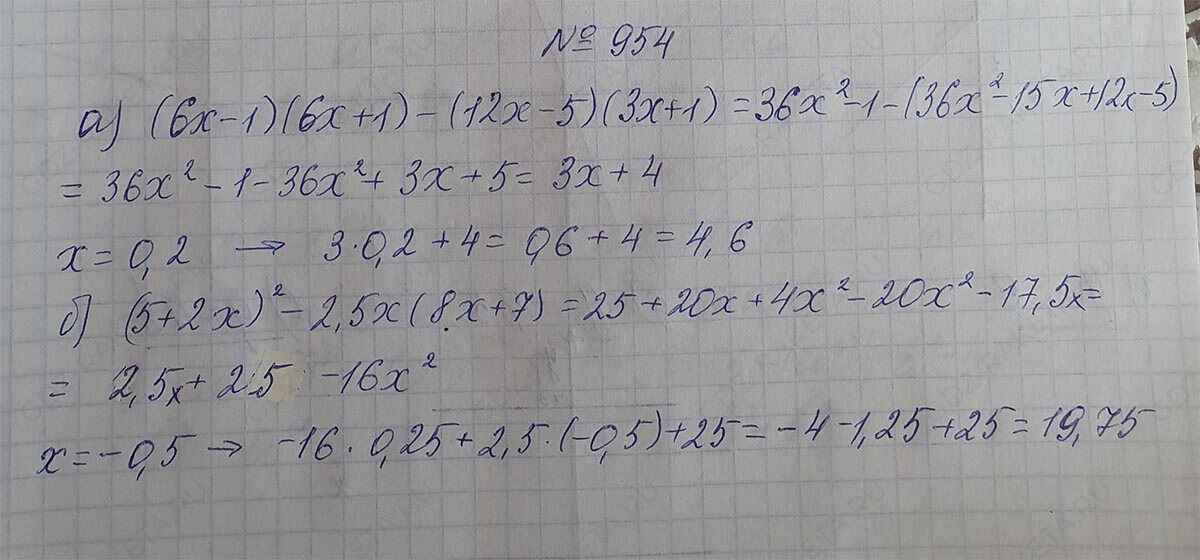 № 954
а) (6x-1)(6x+1)-(12x-5)(3x+1)=36x²-1-(36x²-15x+12x-5)
= 36x²-1-36x²+3x+5= 3x+4
x=0,2 → 3·0,2+4=0,6+4=4,6
б) (5+2x)²-2,5x(8x+7)=25+20x+4x²-20x²-17,5x=
= 2,5x+25 -16x²
x=-0,5 → -16·0,25+2,5·(-0,5)+25=-4-1,25+25=19,75